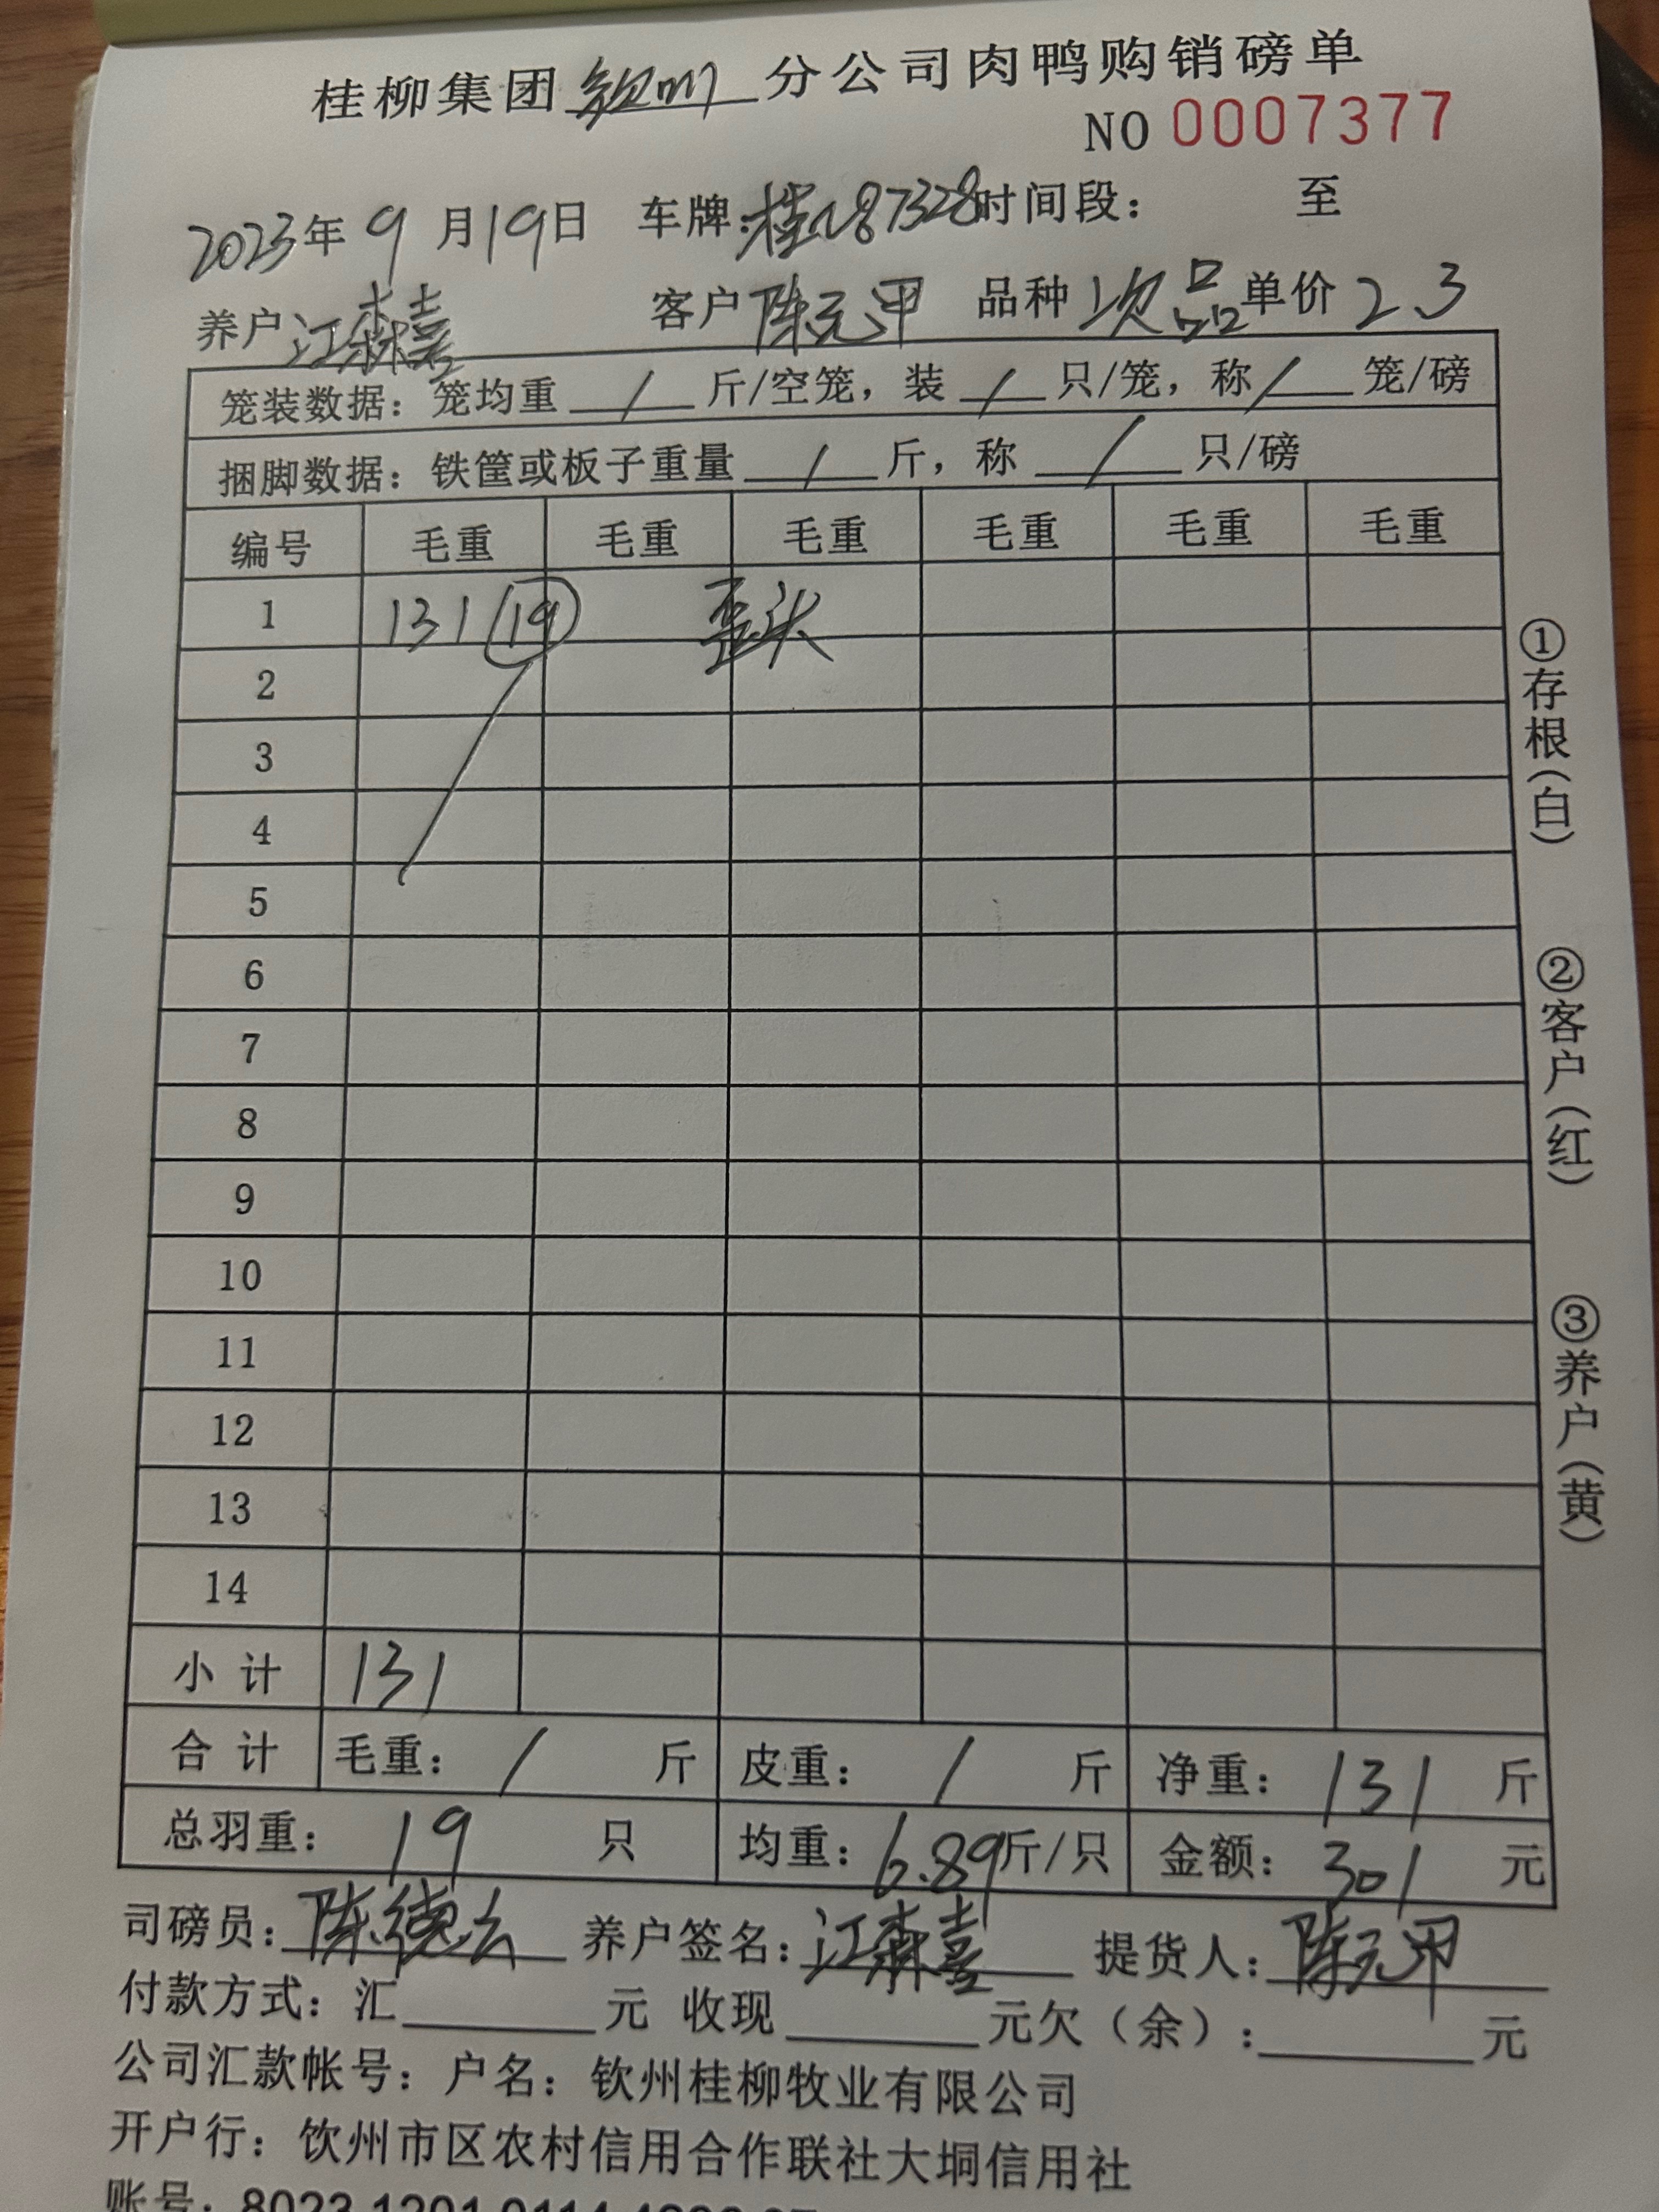 桂柳集团钦州分公司肉鸭购销磅单
NO 0007377
2023年9月19日 车牌:桂N87328时间段: 至
养户江森喜 客户陈元甲 品种次品 单价2.3
笼装数据：笼均重 / 斤/空笼，装 / 只/笼，称 / 笼/磅
捆脚数据：铁筐或板子重量 / 斤，称 / 只/磅
编号 毛重 毛重 毛重 毛重 毛重 毛重
1 131 19 歪头
2
3
4
5
6
7
8
9
10
11
12
13
14
小计 131
合计 毛重： / 斤 皮重： / 斤 净重：131 斤
总羽重：19 只 均重：6.89斤/只 金额：301 元
司磅员：陈德云 养户签名：江森喜 提货人：陈元甲
付款方式：汇 元 收现 元欠（余）： 元
公司汇款帐号：户名：钦州桂柳牧业有限公司
开户行：饮州市区农村信用合作联社大垌信用社
账号：8023 1201 0114
①存根（白）
②客户（红）
③养户（黄）